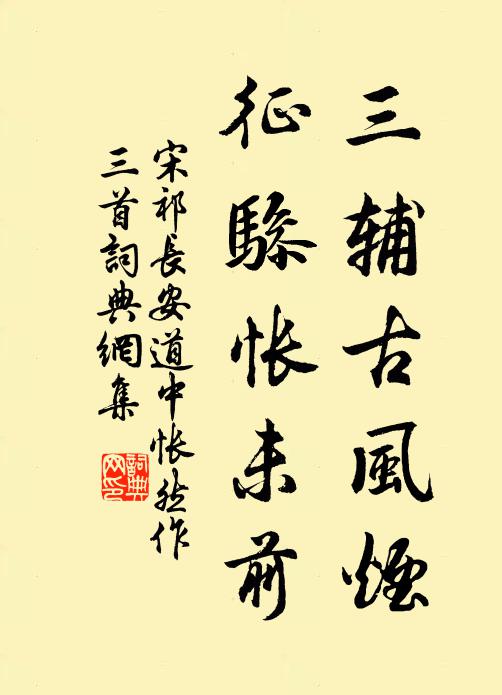 三辅古風煙
征驂悵未前
宋祁長安道中悵然作
三首詞典網集
詞典网印